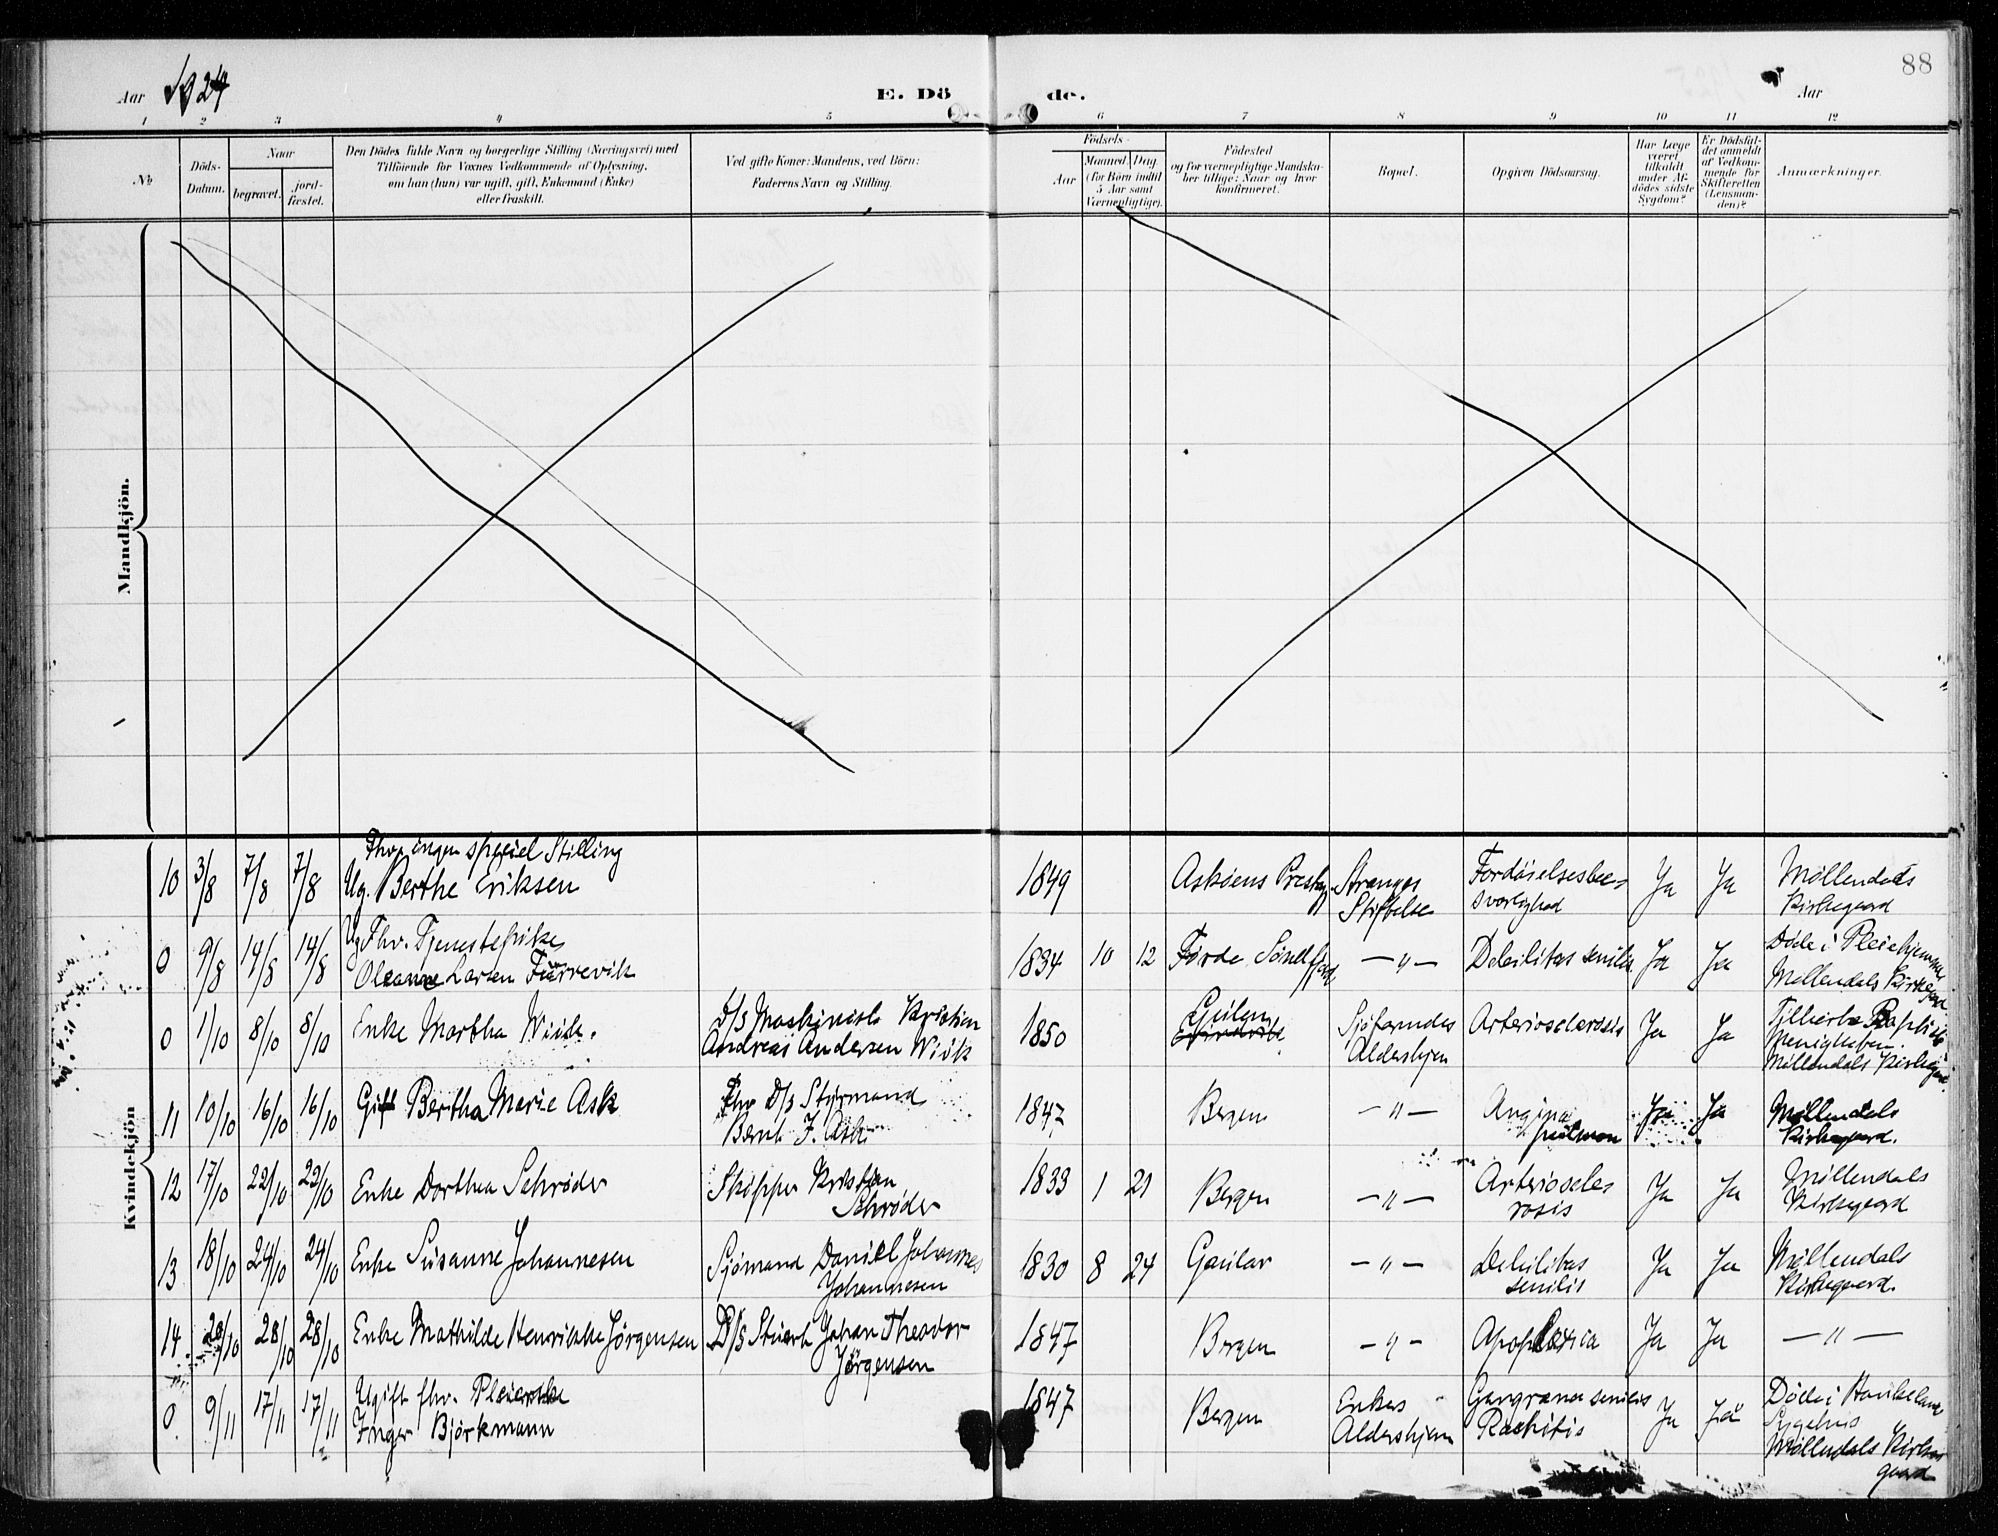 88
Aar 1924
E. Dö
de.
Aar
1 2 3 4 5 6 7 8 9 10 11 12
No
Döds-
Datum.
Naar
begravet.
jord-
fæstet.
Den Dödes fulde Navn og borgerlige Stilling (Næringsvei) med
Tilföiende for Voxnes Vedkommende af Oplysning,
om han (hun) var ugift, gift, Enkemand (Enke)
eller fraskilt.
Ved gifte Koner: Mandens, ved Börn:
Faderens Navn og Stilling.
Födsels-
Aar
Maaned. Dag
(for Börn indtil
5 Aar samt
Værnepligtige).
Födested
og for værnepligtige Mandska-
ber tillige: Naar og hvor
konfirmeret.
Bopæl.
Opgiven Dödsaarsag.
Har Læge
været
tilkaldt
under Af-
dödes sidste
Sygdom?
Er Dödsfal-
det anmeldt
af Vedkom-
mende for
Skifteretten
(Lensman-
den)?
Anmærkninger.
Mandkjön.
Kvindekjön
Fhv. ingen speciel Stilling
10 3/8 7/8 7/8 Ug. Berthe Eriksen 1849 Askøens Prestgj. Stranges Stiftelse Fordøielsesbe-
sværlighed Ja Ja Møllendals
Kirkegaard
0 9/8 14/8 14/8 Ug. Fhv. Tjenestepike
Oleanne Larsen Furrevik 1834 10 12 Førde Søndfjord —"— Debilitas senilis Ja Ja Døde i Pleiehjemme
Møllendals Kirkegaard
0 1/10 8/10 8/10 Enke Martha Wiik. D/s Maskinist Kristian
Andreas Andersen Wiik 1850 Gulen Sjøfarendes
Aldershjem Arteriosclerosis Ja Ja Tilhørte Baptist
Menigheten.
Møllendals Kirkegaard
11 10/10 16/10 16/10 Gift Bertha Marie Ask Fhv D/s Styrmand
Bernt J. Ask 1847 Bergen —"— Angina
pulmon Ja Ja Møllendals
Kirkegaard.
12 17/10 22/10 22/10 Enke Dorthea Schrøder Skipper Kristian
Schrøder 1833 1 21 Bergen —"— Arterioscle
rosis Ja Ja Møllendals
Kirkegaard
13 18/10 24/10 24/10 Enke Susanne Johannesen Sjømand Daniel Johannes
Johannesen 1830 8 24 Gaular —"— Debilitas
senilis Ja Ja Møllendals
Kirkegaard.
14 20/10 28/10 28/10 Enke Mathilde Henrikke Jørgensen D/s Stuert Johan Theodor
Jørgensen 1847 Bergen —"— Apoplexia Ja Ja —"—
0 9/11 17/11 17/11 Ugift fhv. Pleierske
Inger Björkmann 1847 Bergen Enkes
Aldershjem Gangræna senilis
Rachitis Ja Ja Døde i Haukeland
Sygehus
Møllendals Kirke
gaard